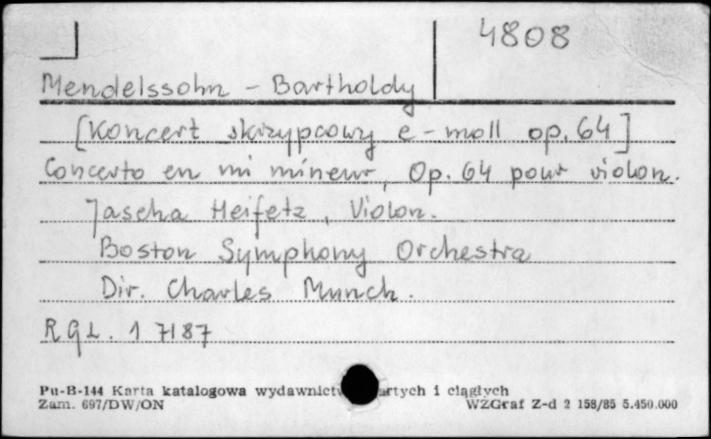 4808
Mendelssohn - Bartholdy
[Koncert skrzypcowy e-moll op. 64]
Concerto en mi mineur, Op. 64 pour violon.
Jascha Heifetz, Violon.
Boston Symphony Orchestra
Dir. Charles Munch.
Pu-B-144 Karta katalogowa ciągłych
Zam. 697/DW/ON WZGraf Z-d 2 158/85 5.450.000